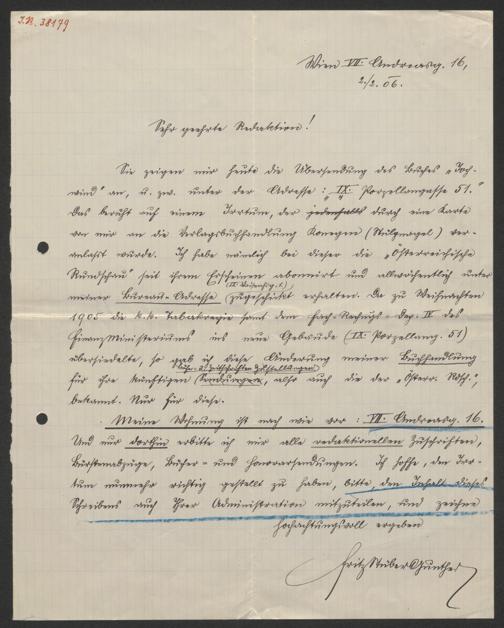 J.N. 38179
Wien VII. Andreasg. 16,
2./2. 06.
Sehr geehrte Redaktion!
Sie zeigen mir heute die Übersendung des Buches „Joch-
wind“ an, u. zw. unter der Adresse: „IX. Porzellangasse 51.“
Das beruht auf einem Irrtum, der jedenfalls durch eine Karte
von mir an die Verlagsbuchhandlung Konegen (Stülpnagel) ver-
anlasst wurde. Ich habe nämlich bei dieser die „Österreichische
Rundschau“ seit ihrem Erscheinen abonniert und allwöchentlich unter
meiner Bureau-Adresse zugeschickt erhalten. Da zu Weihnachten
1905 die k.k. Tabakregie samt dem Fach-Rechngs-Dep. IX des
Finanzministeriums ins neue Gebäude (IX. Porzellang. 51)
übersiedelte, so gab ich diese Änderung meiner Buchhandlung
für ihre künftigen Sendungen, also auch die der „Österr. Rdsch.“,
bekannt. Nur für diese.
Meine Wohnung ist nach wie vor: VII. Andreasg. 16.
Und nur dorthin erbitte ich mir alle redaktionellen Zuschriften,
Bürstenabzüge, Bücher- und Honorarsendungen. Ich hoffe, den Irr-
tum nunmehr richtig gestellt zu haben, bitte, den Inhalt dieses
Schreibens auch Ihrer Administration mitzuteilen, und zeichne
hochachtungsvoll ergeben
Fritz Stüber Gunther